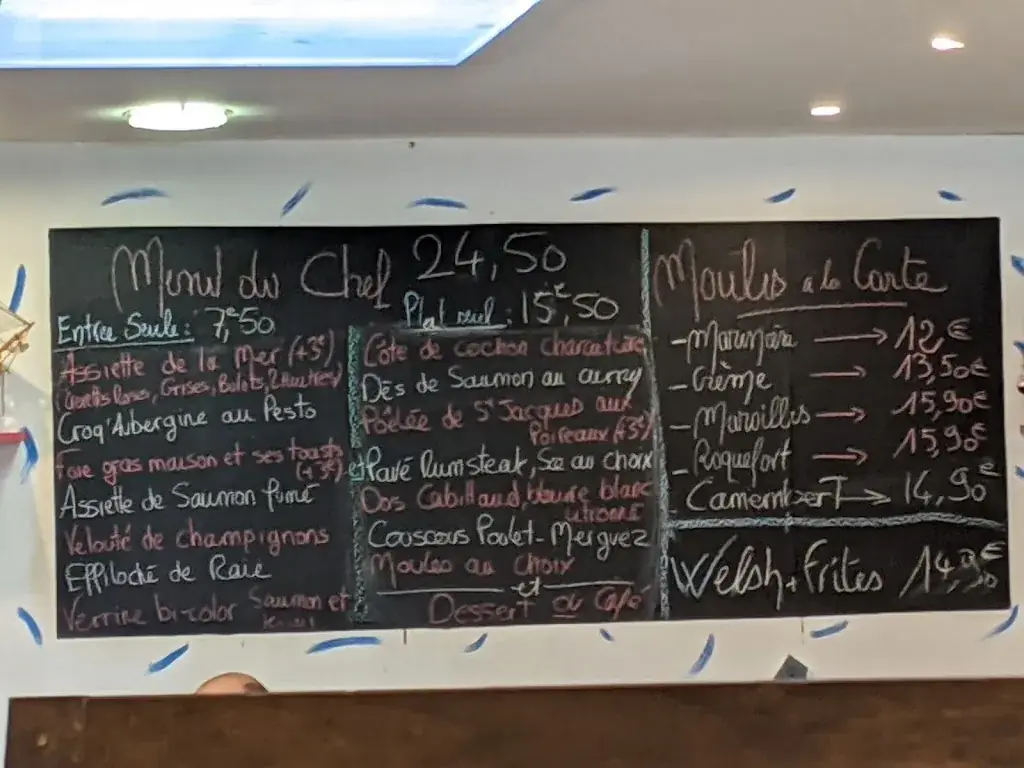 Menu du Chef 24,50
Entrée Seule: 7,€50
Assiette de la Mer (+3€)
Croq'Aubergine au Pesto
Foie gras maison et ses toasts
(+3€)
Assiette de Saumon fumé
Velouté de champignons
Effiloché de Raie
Verrine bi-color Saumon et
et
Plat seul: 15,€50
Côte de cochon charcutière
Dés de Saumon au curry
Poêlée de St Jacques aux
Poireaux (+3€)
Pavé Rumsteak, Sce au choix
Dos Cabillaud, beurre blanc
citronné
Couscous Poulet-Merguez
Moules au choix
et
Dessert ou Café
Moules a la Carte
-Marinière → 12,€
-Crème → 13,50€
-Maroilles → 15,90€
-Roquefort → 15,90€
-Camembert → 14,90€
Welsh+Frites 14,90€